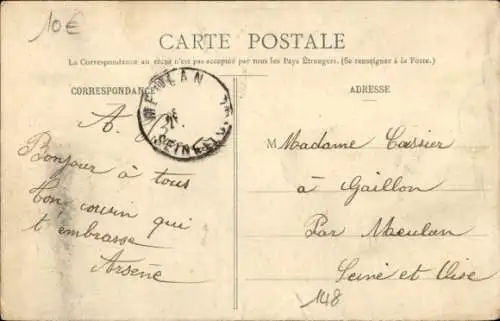 10€
CARTE POSTALE
La Correspondance au recto n'est pas acceptée par tous les Pays Étrangers. (Se renseigner à la Poste.)
CORRESPONDANCE
ADRESSE
MEULAN
SEINE
A.
Bonjour à tous
Ton cousin qui
t'embrasse
Arsène
Madame Cassier
à Gaillon
Par Meulan
Seine et Oise
148